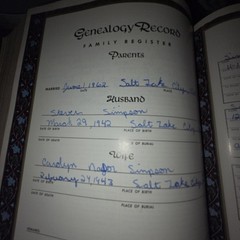 Genealogy Record
FAMILY REGISTER
Parents
MARRIED June 1, 1962 Salt Lake
DATE PLACE
Husband
Steven Simpson
March 29, 1942 Salt Lake
DATE OF BIRTH PLACE OF BIRTH
DATE OF DEATH PLACE OF DEATH
Wife
Carolyn Naylor Simpson
February 24, 1942 Salt Lake City
DATE OF BIRTH PLACE OF BIRTH
DATE OF DEATH PLACE OF DEATH